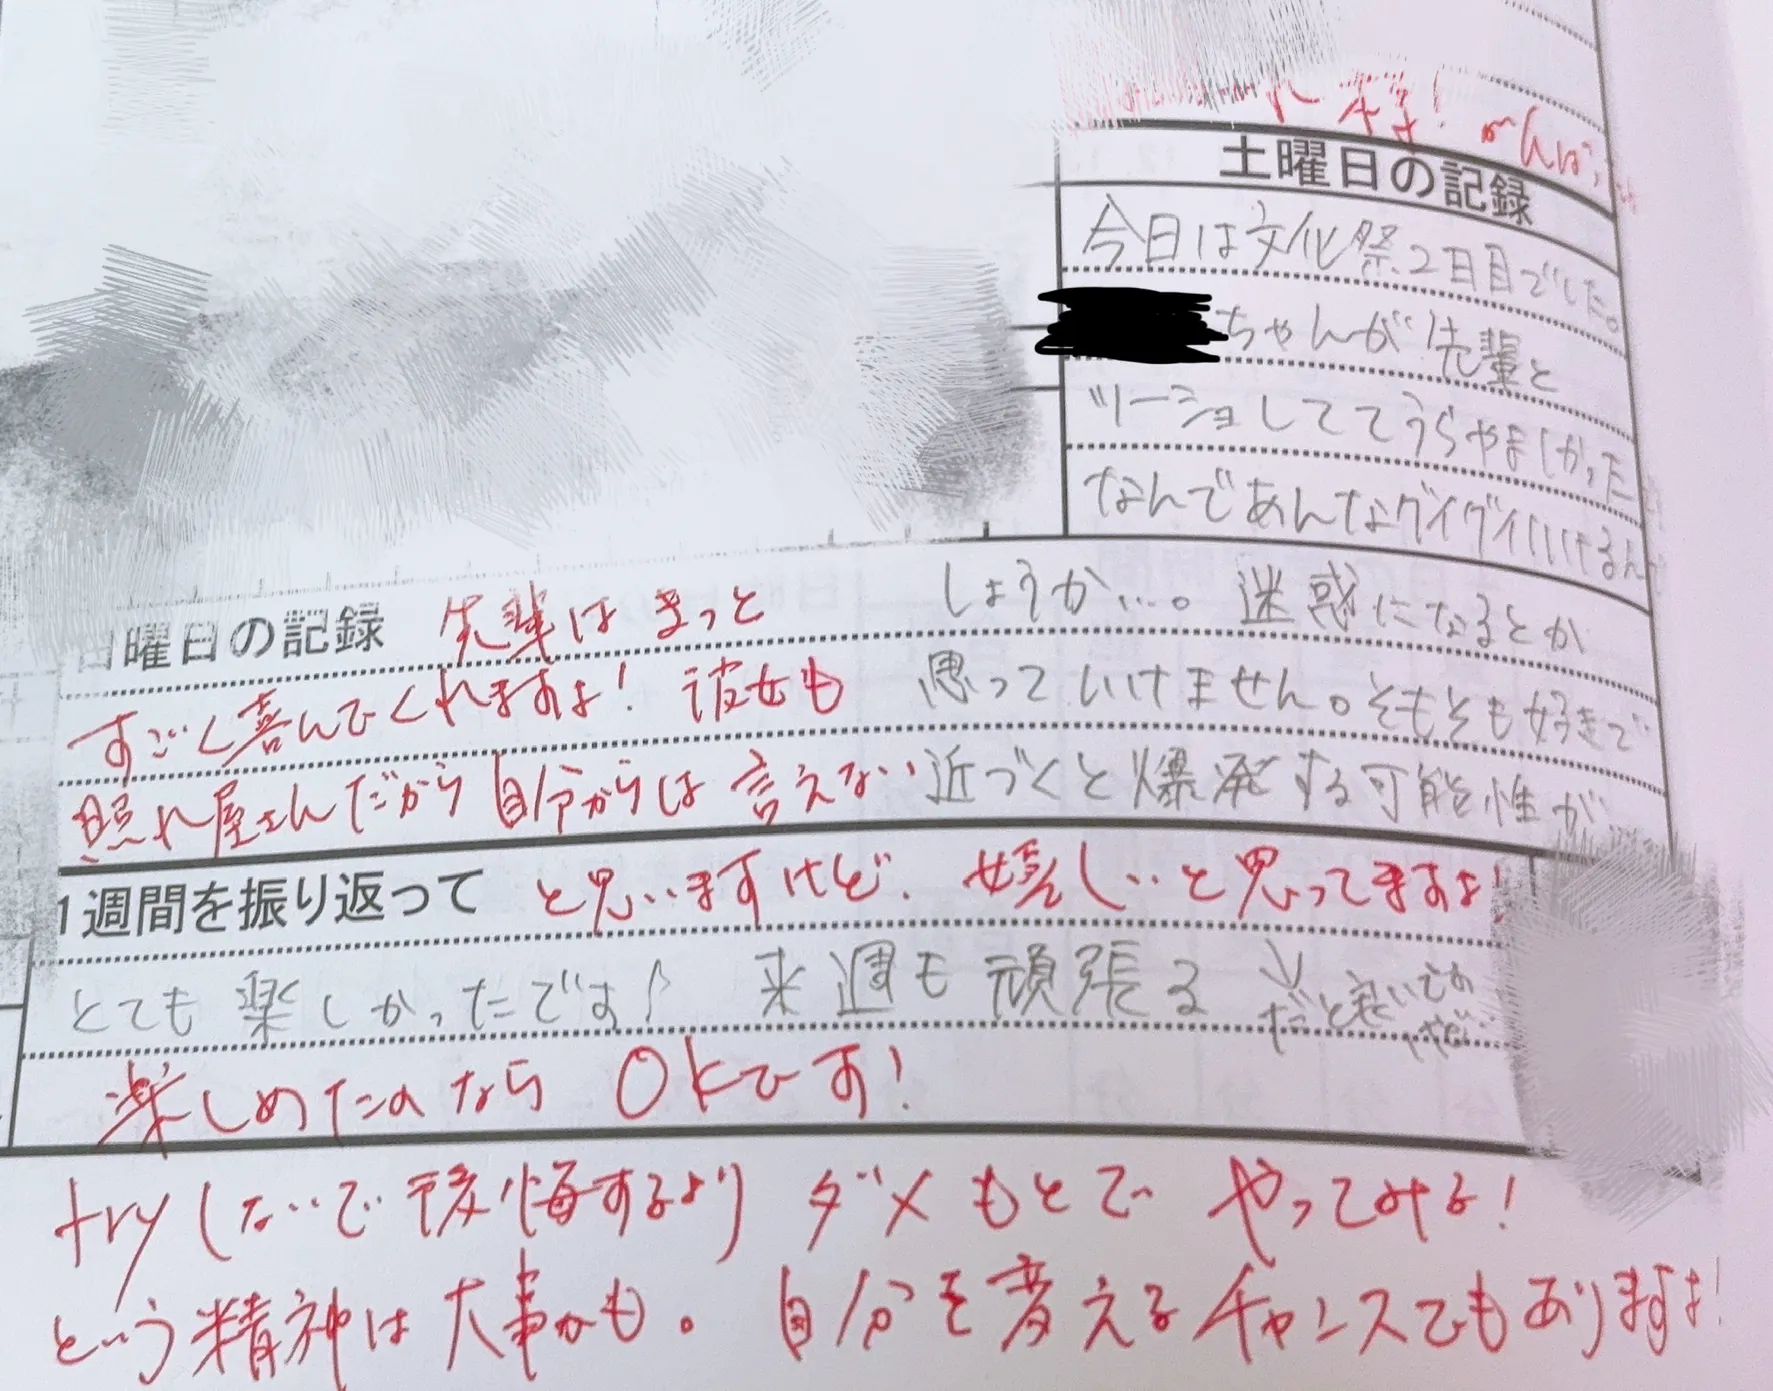 土曜日の記録
今日は文化祭2日目でした。
ちゃんが先輩と
ツーショしててうらやましかった
なんであんなグイグイいけるん
しょうか…。迷惑になるとか
思っていけません。そもそも好きで
近づくと爆発する可能性が
曜日の記録
先輩はきっと
すごく喜んでくれますよ! 彼女も
照れ屋さんだから自分からは言えない
1週間を振り返って
と思いますけど、嬉しいと思ってますよ!
とても楽しかったです! 来週も頑張る
だと良いですけど…
楽しめたのなら OKです!
tryしないで後悔するより ダメもとで やってみる!
という精神は大事かも。自分を変えるチャンスでもありますよ!